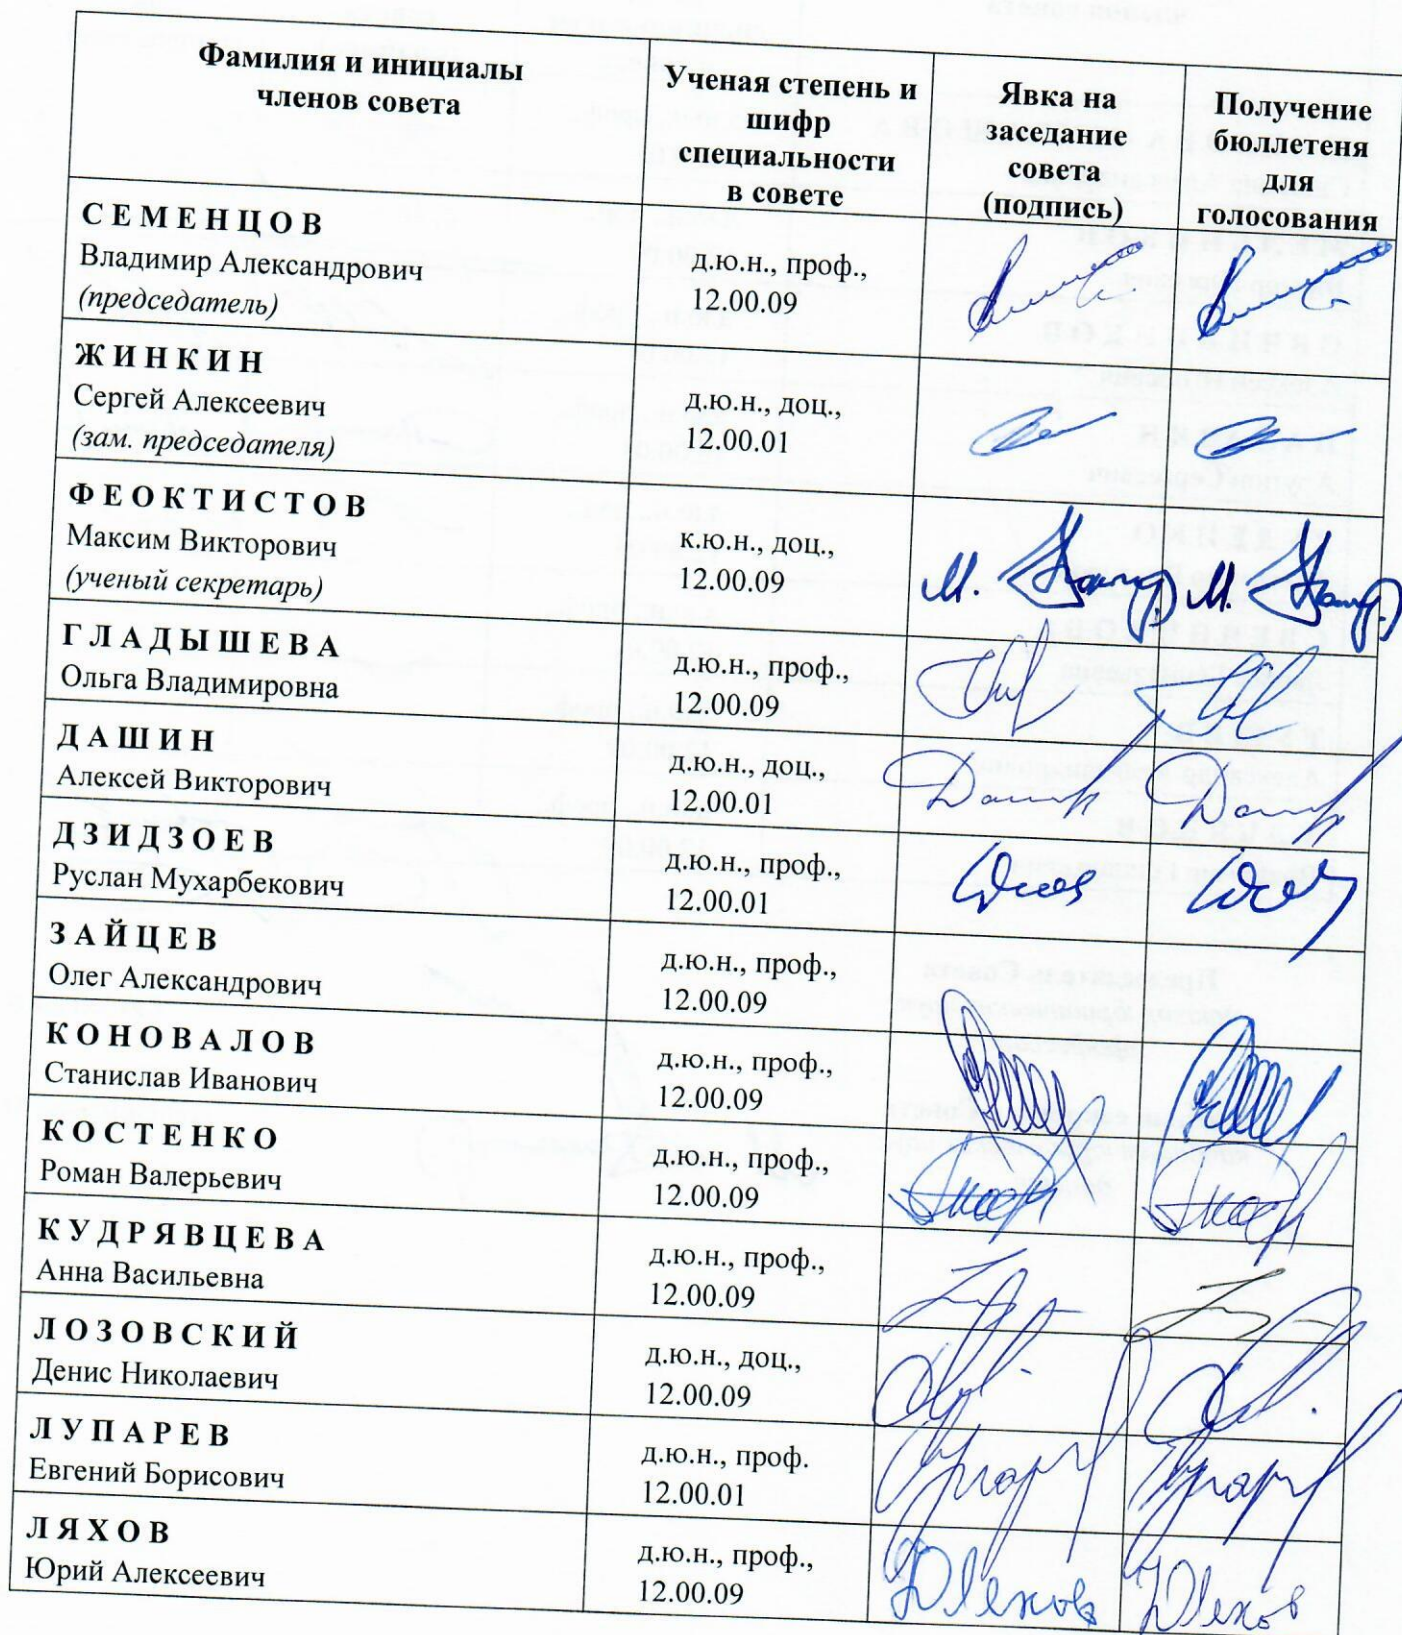 Фамилия и инициалы
членов совета
Ученая степень и
шифр
специальности
в совете
Явка на
заседание
совета
(подпись)
Получение
бюллетеня
для
голосования
С Е М Е Н Ц О В
Владимир Александрович
(председатель)
д.ю.н., проф.,
12.00.09
Ж И Н К И Н
Сергей Алексеевич
(зам. председателя)
д.ю.н., доц.,
12.00.01
Ф Е О К Т И С Т О В
Максим Викторович
(ученый секретарь)
к.ю.н., доц.,
12.00.09
Г Л А Д Ы Ш Е В А
Ольга Владимировна
д.ю.н., проф.,
12.00.09
Д А Ш И Н
Алексей Викторович
д.ю.н., доц.,
12.00.01
Д З И Д З О Е В
Руслан Мухарбекович
д.ю.н., проф.,
12.00.01
З А Й Ц Е В
Олег Александрович
д.ю.н., проф.,
12.00.09
К О Н О В А Л О В
Станислав Иванович
д.ю.н., проф.,
12.00.09
К О С Т Е Н К О
Роман Валерьевич
д.ю.н., проф.,
12.00.09
К У Д Р Я В Ц Е В А
Анна Васильевна
д.ю.н., проф.,
12.00.09
Л О З О В С К И Й
Денис Николаевич
д.ю.н., доц.,
12.00.09
Л У П А Р Е В
Евгений Борисович
д.ю.н., проф.
12.00.01
Л Я Х О В
Юрий Алексеевич
д.ю.н., проф.,
12.00.09